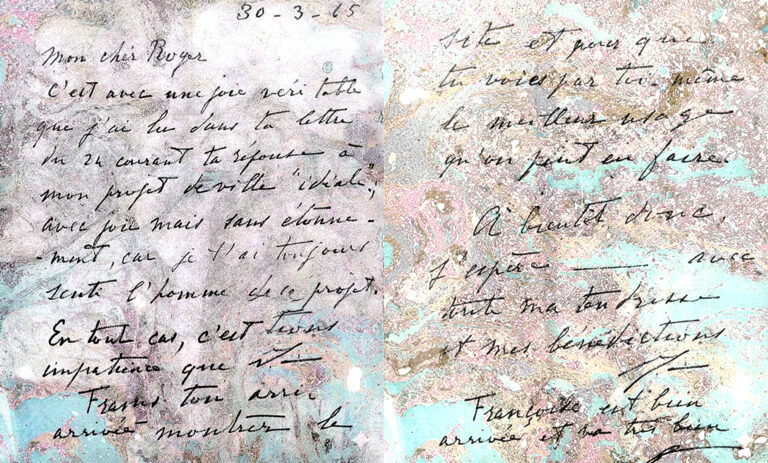 30-3-65
Mon cher Roger
C'est avec une joie véritable
que j'ai lu dans ta lettre
du 24 courant ta réponse à
mon projet de ville "idéale",
avec joie mais sans étonne-
-ment, car je t'ai toujours
senti l'homme de ce projet.
En tout cas, c'est
impatience que
ton
arrivée montrer le
site et pour que
tu voies par toi-même
le meilleur usage
qu'on peut en faire.
A bientôt donc,
j'espère — avec
toute ma tendresse
et mes bénédictions
Françoise est bien
arrivée et va très bien